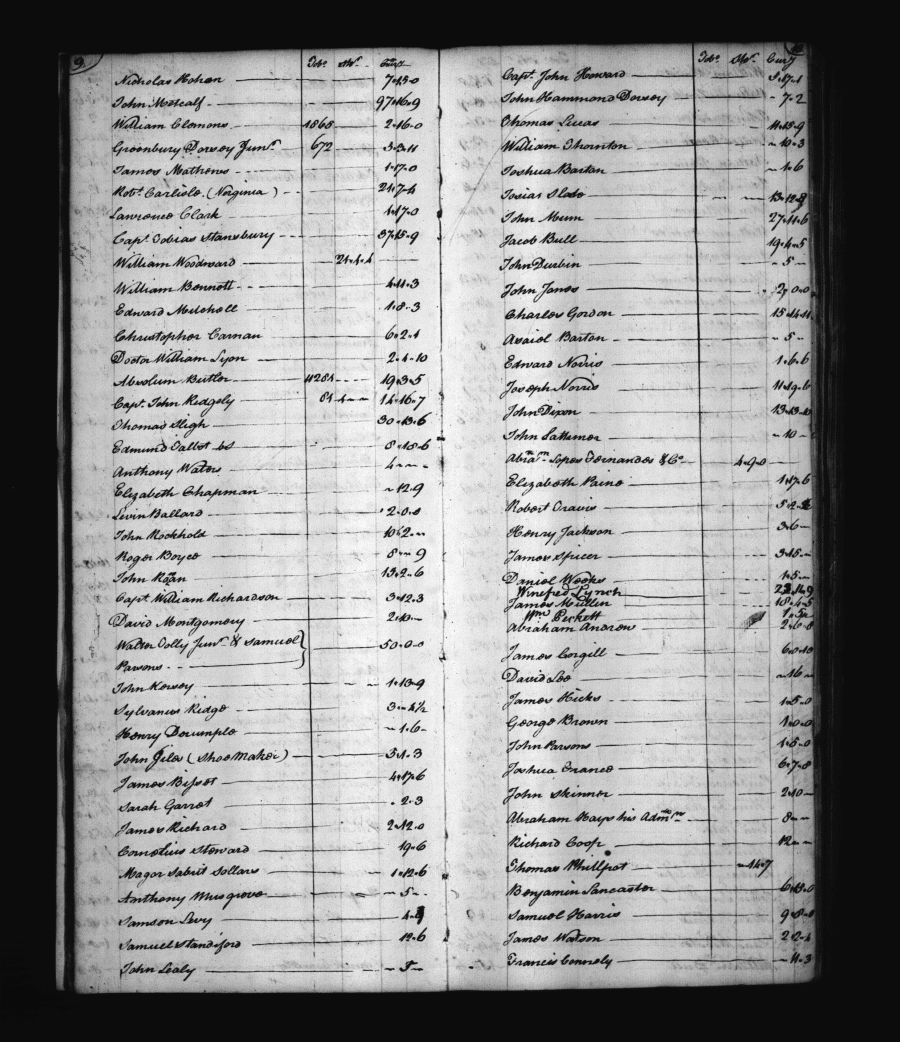 9
Tobo. Ster. Curry
Nicholas Hohen 7-15-0
John Metcalf 97-16-9
William Clemons 1868 2-16-0
Greenbury Dorsey Junr. 672 3-3-11
James Mathews 1-17-0
Robt. Carlisle (Verginia)
Lawrence Clark 1-17-0
Capt. Tobias Stansbury 37-15-9
William Woodward 24-4-4
William Bennett 4-11-3
Edward Mitchell 1-8-3
Christopher Carnan 6-2-1
Doctor William Lyon 2-4-10
Absolum Butler 19-3-5
Capt. John Ridgely 14-16-7
Thomas Sligh 30-13-6
Edmund Talbot 8-18-6
Anthony Waters 4--
Elizabeth Chapman -12-9
Levin Ballard 2-0-0
John Rockhold
Roger Boyce 8--9
John Roan 13-2-6
Capt. William Richardson 3-12-3
David Montgomery 2-13-
Walter Tolly Junr. & Samuel } 50-0-0
Parsons
John Kersey 1-13-9
Sylvanus Ridge 3--4½
Henry Dorumple -1-6-
John Giles (Shoe Maker) 3-1-3
James Bisset 4-17-6
Sarah Garret -2-3
James Richard 2-12-0
Cornelius Steward 19-6
Magor Sabrit Sollars 1-12-6
Anthony Musgrove -5-
Samson Levy
Samuel Standiford 12-6
John Lealy -5-
10
Tobo. Ster. Curry
Capt. John Howard 5-17-1
John Hammond Dorsey -7-2
Thomas Lucas 11-15-9
William Thornton -10-3
Joshua Barton -1-6
Josias Slade
John Mum 27-11-6
Jacob Bull 19-4-5
John Durbin -5-
John Jones
Charles Gordon
Asaiel Barton -5-
Edward Norris 1-6-6
Joseph Norris 11-19-6
John Dixon 13-13-10
John Lattemer -10-
Abram. Lopes Fernandes & Co. 4-9-0
Elizabeth Paine 1-17-6
Robert Travis
Henry Jackson 3-6-
James Spicer 3-15-
Daniel Weeks 1-5-
Winefred Lynch
James Mullin 18-4-5
Wm. Peckett
Abraham Andrew 2-6-8
James Corgill 6-0-10
David Lee -16-
James Hicks 1-5-0
George Brown 1-0-0
John Parsons 1-5-0
Joshua Crance 6-7-8
John Skinner 2-10-
Abraham Hays his Admrn. 8--
Richard Coop 12--
Thomas Phillpot -14-7
Benjamin Lancaster 6-13-0
Samuel Harris
James Watson 2-2-4
Francis Connely -11-3